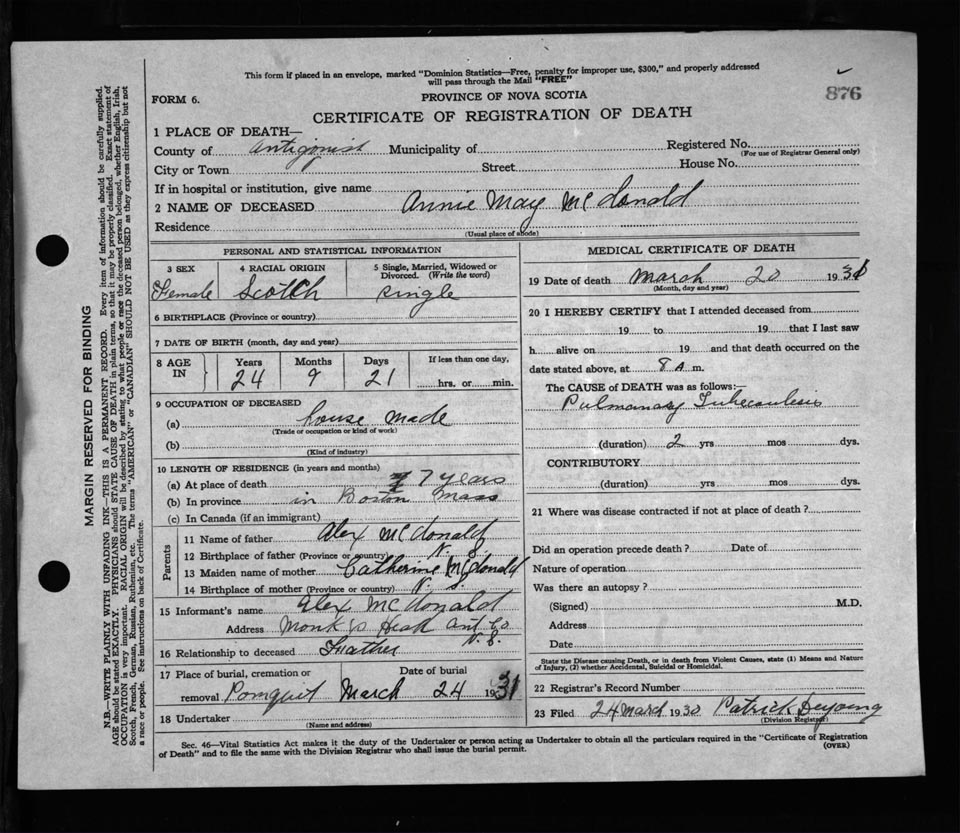 This form if placed in an envelope, marked "Dominion Statistics—Free, penalty for improper use, $300," and properly addressed
will pass through the Mail "FREE"
876
FORM 6.
PROVINCE OF NOVA SCOTIA
CERTIFICATE OF REGISTRATION OF DEATH
1 PLACE OF DEATH—
County of Antigonish Municipality of Registered No.
(For use of Registrar General only)
City or Town Street House No.
If in hospital or institution, give name
2 NAME OF DECEASED Annie May McDonald
Residence
(Usual place of abode)
PERSONAL AND STATISTICAL INFORMATION
3 SEX 4 RACIAL ORIGIN 5 Single, Married, Widowed or
Divorced. (Write the word)
Female Scotch single
6 BIRTHPLACE (Province or country)
7 DATE OF BIRTH (month, day and year)
8 AGE IN Years Months Days If less than one day,
24 9 21 hrs. or min.
9 OCCUPATION OF DECEASED
(a) house made
(Trade or occupation or kind of work)
(b)
(Kind of industry)
10 LENGTH OF RESIDENCE (in years and months)
(a) At place of death 7 years
(b) In province in Boston Mass
(c) In Canada (if an immigrant)
Parents
11 Name of father Alex McDonald
12 Birthplace of father (Province or country) N. S.
13 Maiden name of mother Catherine McDonald
14 Birthplace of mother (Province or country) N. S.
15 Informant's name Alex McDonald
Address Monk s Head Ant Co
N. S.
16 Relationship to deceased Father
17 Place of burial, cremation or Date of burial
removal Pomquit March 24 1931
18 Undertaker
(Name and address)
MEDICAL CERTIFICATE OF DEATH
19 Date of death March 20 193
(Month, day and year)
20 I HEREBY CERTIFY that I attended deceased from
19 to 19 that I last saw
h alive on 19 and that death occurred on the
date stated above, at 8 A m.
The CAUSE OF DEATH was as follows:—
Pulmonary Tubecaulesis
(duration) 2 yrs mos dys.
CONTRIBUTORY
(duration) yrs. mos. dys.
21 Where was disease contracted if not at place of death?
Did an operation precede death? Date of
Nature of operation
Was there an autopsy?
(Signed) M.D.
Address
Date
State the Disease causing Death, or in death from Violent Causes, state (1) Means and Nature
of Injury, (2) whether Accidental, Suicidal or Homicidal.
22 Registrar's Record Number
23 Filed 24 March 1930 Patrick Deyoung
(Division Registrar)
Sec. 46—Vital Statistics Act makes it the duty of the Undertaker or person acting as Undertaker to obtain all the particulars required in the "Certificate of Registration
of Death" and to file the same with the Division Registrar who shall issue the burial permit.
(OVER)
MARGIN RESERVED FOR BINDING
N.B.—WRITE PLAINLY WITH UNFADING INK—THIS IS A PERMANENT RECORD. Every item of information should be carefully supplied.
AGE should be stated EXACTLY. PHYSICIANS should STATE CAUSE OF DEATH in plain terms, so that it may be properly classified. Exact statement of
OCCUPATION is very important. RACIAL ORIGIN will be described by stating to what people or race the deceased person belonged, whether English, Irish,
Scotch, French, German, Russian, Ruthenian, etc. The terms "AMERICAN" or "CANADIAN" SHOULD NOT BE USED as they express citizenship but not
a race or people. See instructions on back of Certificate.